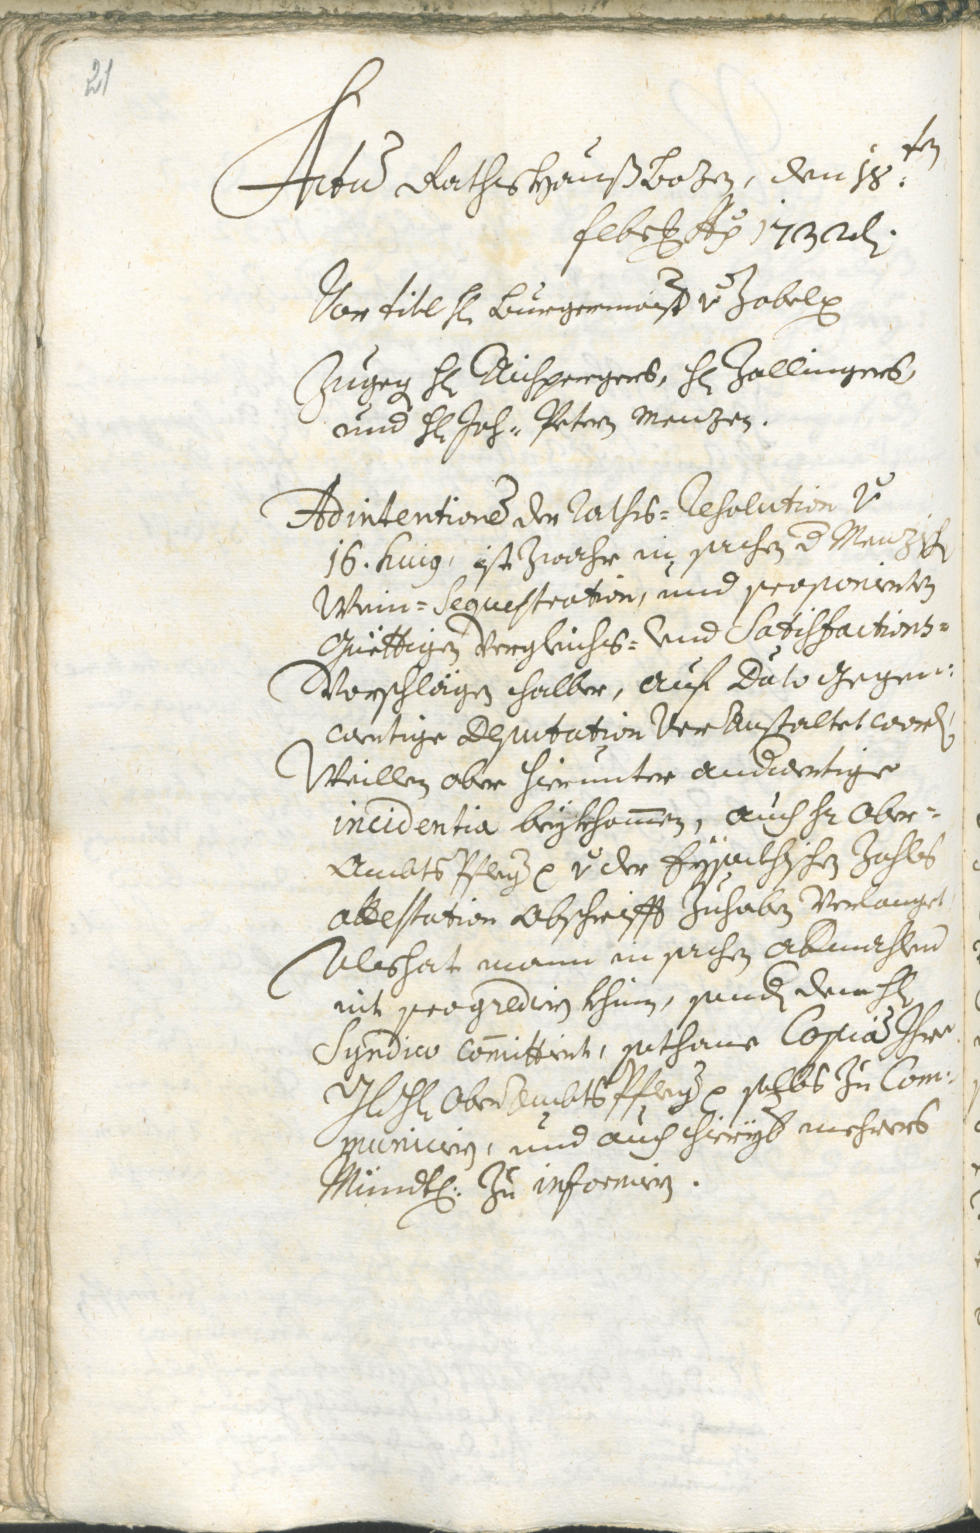 21
Actum Rathshauß Bozen, den 18.ten
febr: Ao 1732
Vor titl H: Burgermaist: v: Zobel
Zugeg: H: Aichpergers, H: Zallingers,
und H: Joh: Petern Menzen.
Ad intentionem der Raths= Resolution v:
16. huig, ist zwahr in sachen d: Menzisch:
Wein= Sequestration, und proponierten
Güettigen Vergleichs= und Satisfactions=
Vorschlägen halber, auf Dato gegen=
wertige Deputation Veranstaltet word:,
Weillen aber hierunter andwertige
incidentia beykhommen, auch Hr Ober=
Ambts Pfleg: v: der
attestation Abschrifft Zuhaben Verlanget,
Als hat mann in sachen abermahlen
nit progredirn khinen, sond: dem H:
Syndico committirt, sothane Copiam Ihro
H: Ober Ambts Pfleg: selbs Zu Com=
municirn, und auch hierüb: mehrers
Mündtl: Zu informirn.